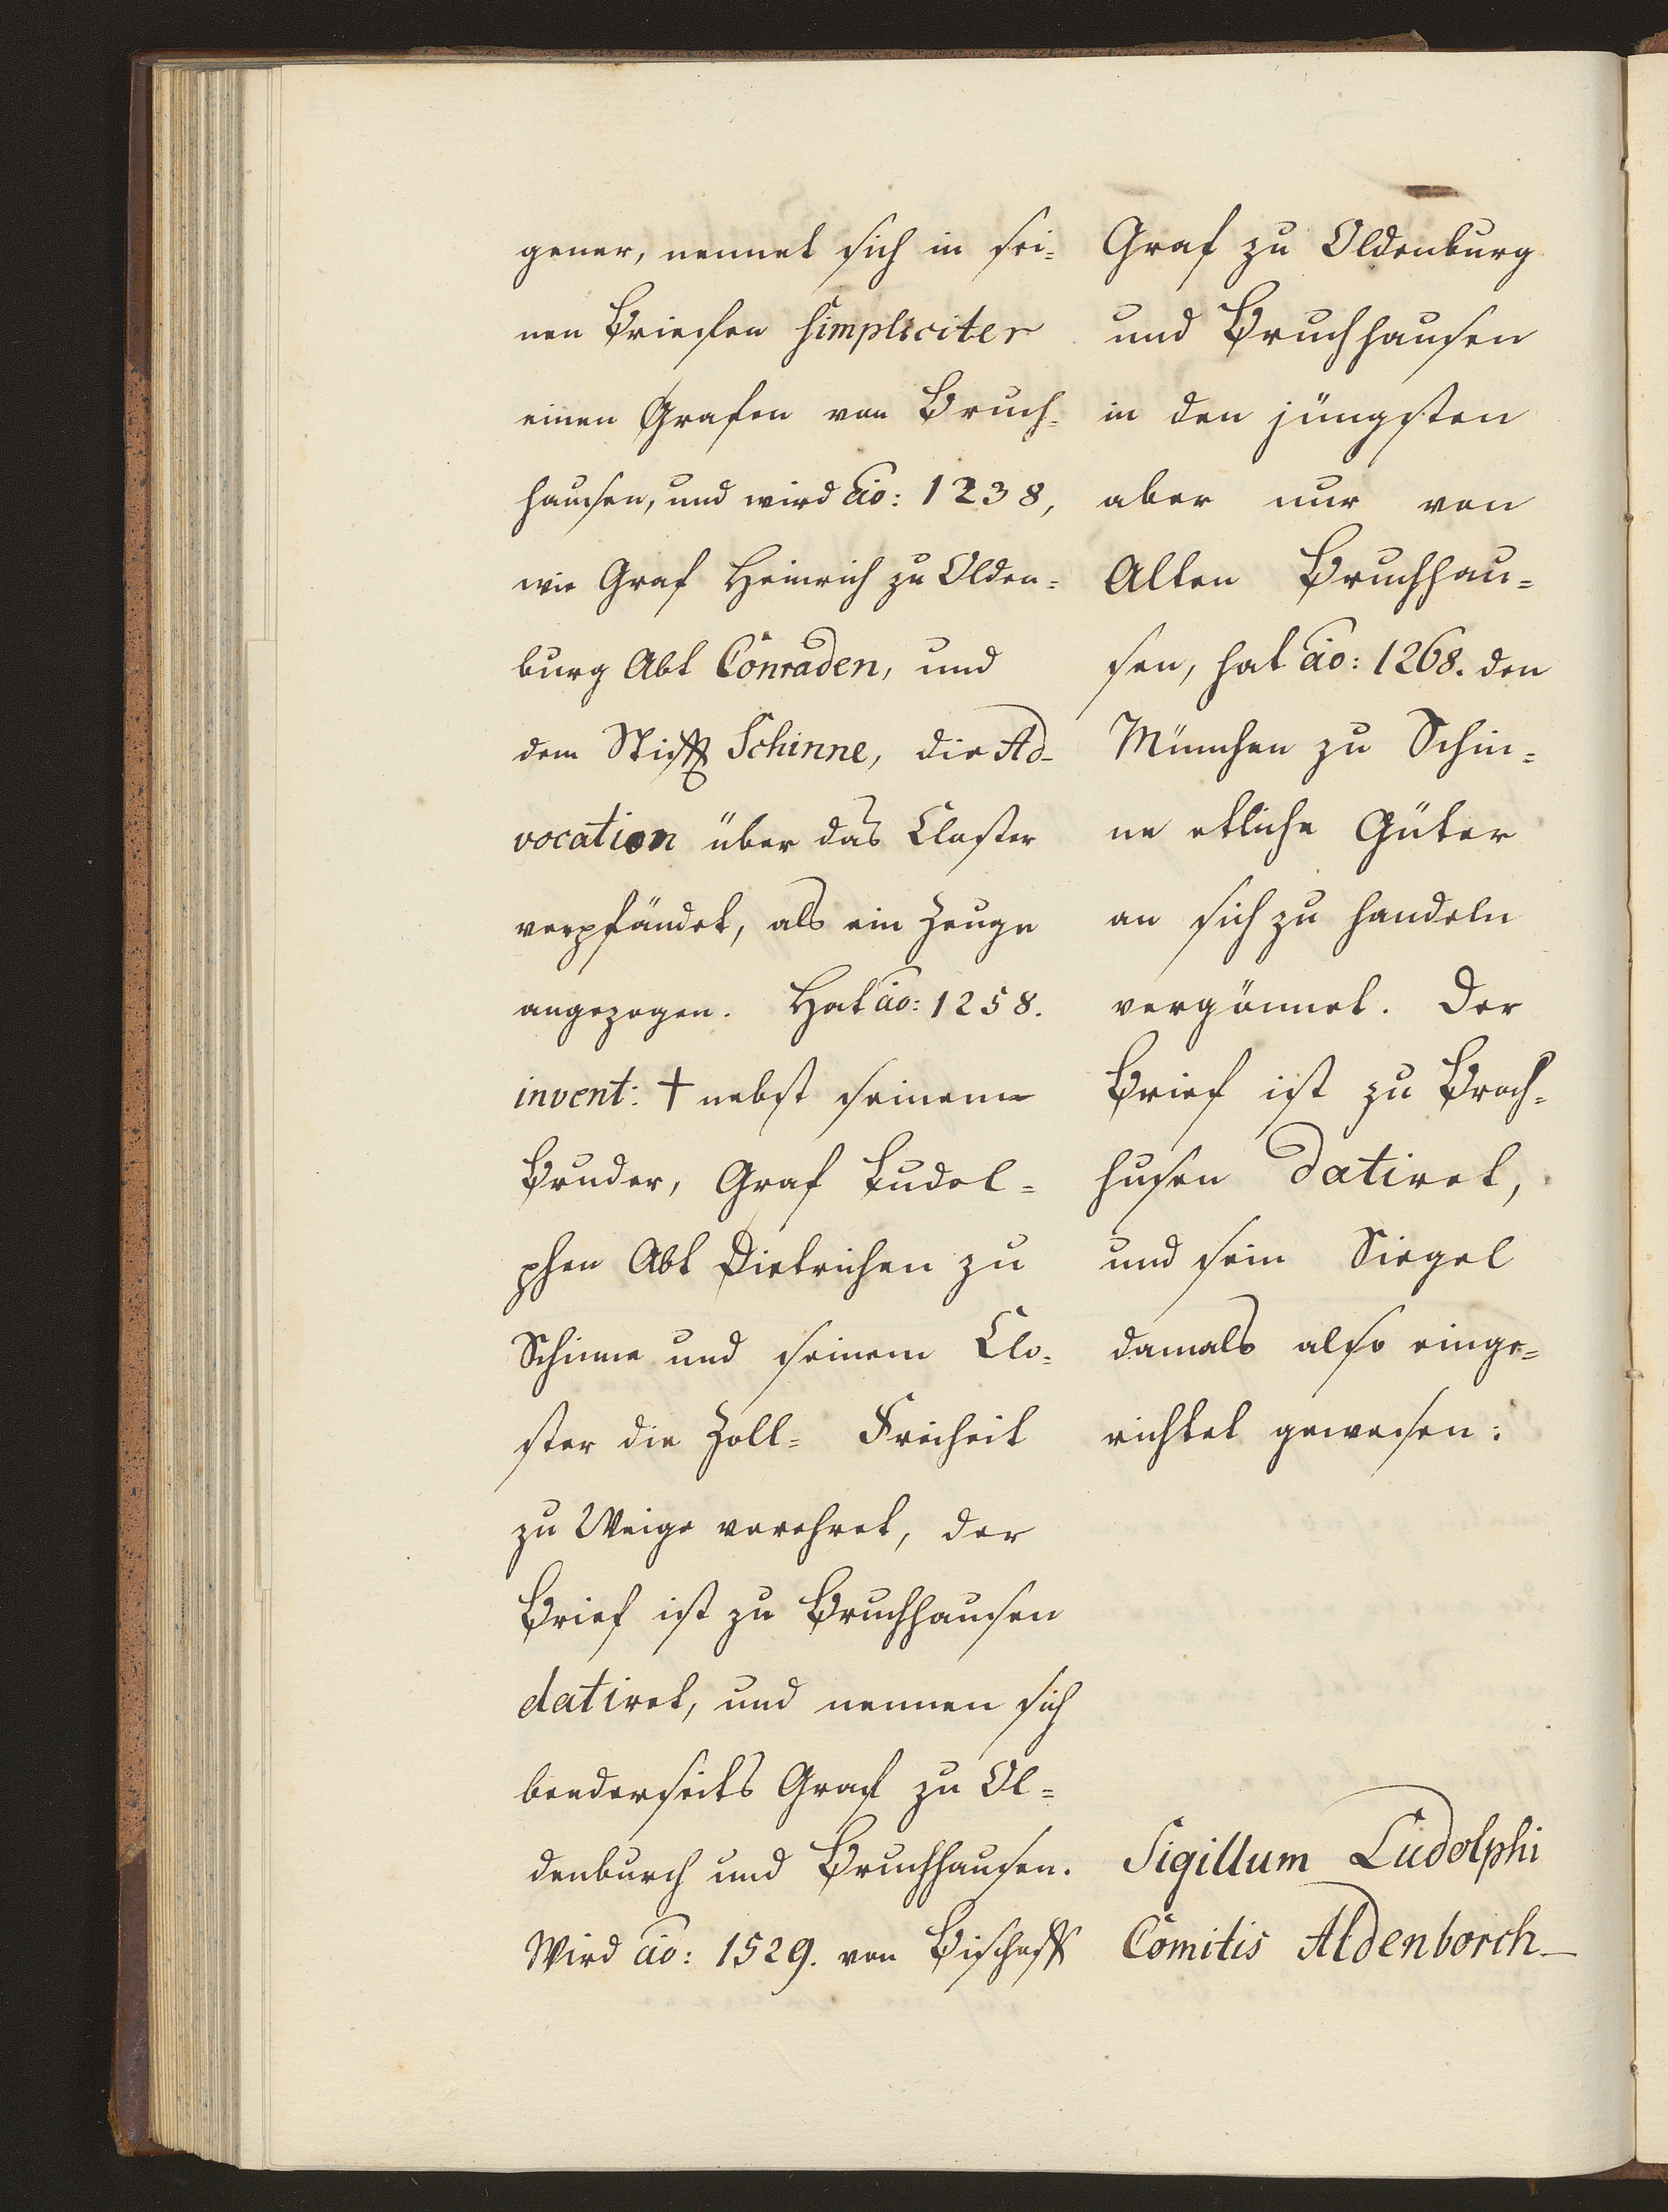 gener, nennet sich in sei=
nen Briefen simpliciter
einen Grafen von Bruch=
hausen, und wird ao: 1238,
wie Graf Heinrich zu Olden=
burg Abt Conraden, und
dem Stifft Schinne, die Ad-
vocation über das Closter
verpfändet, als ein Zeuge
angezogen. Hat ao: 1258.
invent: † nebst seinem
Bruder, Graf Ludol=
phen Abt Dietrichen zu
Schinne und seinem Clo=
ster die Zoll= Freiheit
zu Weige verehret, der
Brief ist zu Bruchhausen
datiret, und nennen sich
beederseits Graf zu Ol=
denburch und Bruchhausen.
Wird ao: 1529. von Bischoff
Graf zu Oldenburg
und Bruchhausen
in den jüngsten
aber nur von
Alten Bruchhau=
sen, hat ao: 1268. den
München zu Schin=
ne etliche Güter
an sich zu handeln
vergönnet. Der
Brief ist zu Broch=
husen datiret,
und sein Siegel
damals also einge=
richtet gewesen:
Sigillum Ludolphi
Comitis Aldenborch-